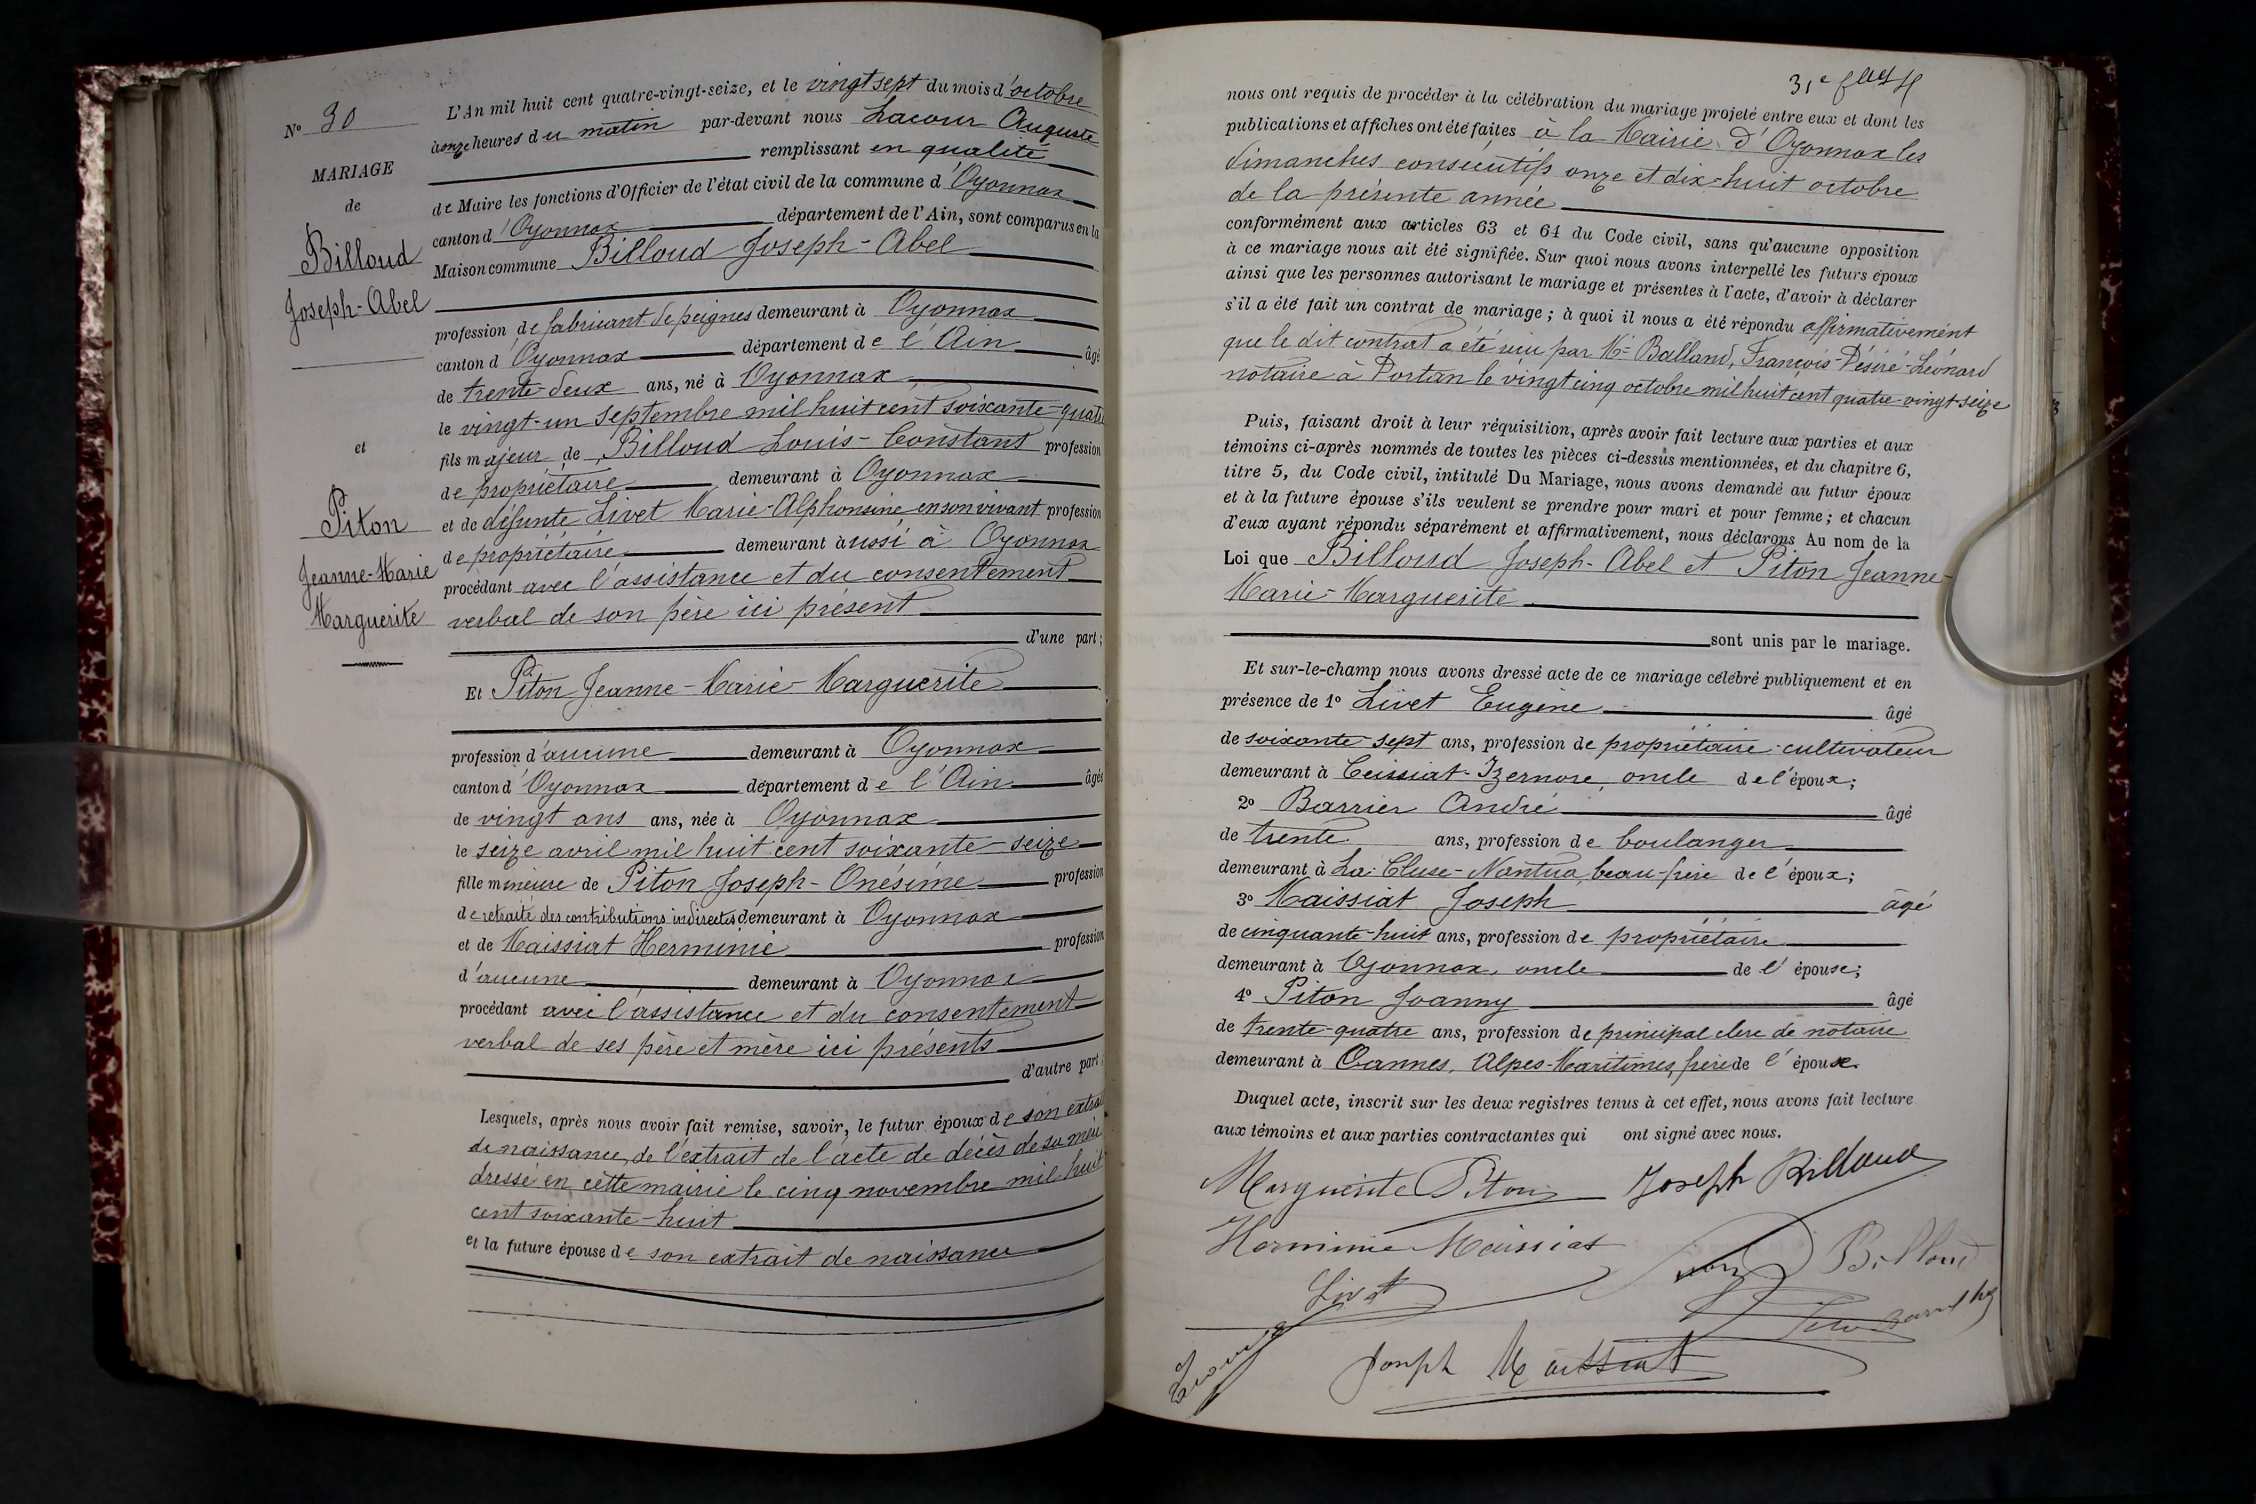 N° 30
MARIAGE
de
Billoud
Joseph-Abel
et
Piton
Jeanne-Marie
Marguerite
L'An mil huit cent quatre-vingt-seize, et le vingt sept du mois d'octobre
à onze heures du matin par-devant nous Lacour Auguste
remplissant en qualité
de Maire les fonctions d'Officier de l'état civil de la commune d'Oyonnax
canton d'Oyonnax département de l'Ain, sont comparus en la
Maison commune Billoud Joseph-Abel
profession de fabricant de peignes demeurant à Oyonnax
canton d'Oyonnax département de l'Ain âgé
de trente-deux ans, né à Oyonnax
le vingt-un septembre mil huit cent soixante-quatre
fils majeur de Billoud Louis-Constant profession
de propriétaire demeurant à Oyonnax
et de défunte Livet Marie-Alphonsine en son vivant profession
de propriétaire demeurant aussi à Oyonnax
procédant avec l'assistance et du consentement
verbal de son père ici présent
d'une part;
Et Piton Jeanne-Marie-Marguerite
profession d'aucune demeurant à Oyonnax
canton d'Oyonnax département de l'Ain âgée
de vingt ans ans, née à Oyonnax
le seize avril mil huit cent soixante-seize
fille mineure de Piton Joseph-Onésime profession
de retraité des contributions indirectes demeurant à Oyonnax
et de Maissiat Herminie profession
d'aucune demeurant à Oyonnax
procédant avec l'assistance et du consentement
verbal de ses père et mère ici présents
d'autre part;
Lesquels, après nous avoir fait remise, savoir, le futur époux de son extrait
de naissance, de l'extrait de l'acte de décès de sa mère
dressé en cette mairie le cinq novembre mil huit
cent soixante-huit
et la future épouse de son extrait de naissance
31e
nous ont requis de procéder à la célébration du mariage projeté entre eux et dont les
publications et affiches ont été faites à la Mairie d'Oyonnax les
dimanches consécutifs onze et dix-huit octobre
de la présente année
conformément aux articles 63 et 64 du Code civil, sans qu'aucune opposition
à ce mariage nous ait été signifiée. Sur quoi nous avons interpellé les futurs époux
ainsi que les personnes autorisant le mariage et présentes à l'acte, d'avoir à déclarer
s'il a été fait un contrat de mariage; à quoi il nous a été répondu affirmativement
que le dit contrat a été reçu par Me Balland, François-Désiré-Léonard
notaire à Dortan le vingt cinq octobre mil huit cent quatre-vingt-seize
Puis, faisant droit à leur réquisition, après avoir fait lecture aux parties et aux
témoins ci-après nommés de toutes les pièces ci-dessus mentionnées, et du chapitre 6,
titre 5, du Code civil, intitulé Du Mariage, nous avons demandé au futur époux
et à la future épouse s'ils veulent se prendre pour mari et pour femme; et chacun
d'eux ayant répondu séparément et affirmativement, nous déclarons Au nom de la
Loi que Billoud Joseph-Abel et Piton Jeanne-
Marie-Marguerite
sont unis par le mariage.
Et sur-le-champ nous avons dressé acte de ce mariage célébré publiquement et en
présence de 1° Livet Eugène âgé
de soixante-sept ans, profession de propriétaire-cultivateur
demeurant à Ceissiat-Izernore, oncle de l'époux;
2° Barrier André âgé
de trente ans, profession de boulanger
demeurant à La Cluse-Nantua, beau-frère de l'époux;
3° Maissiat Joseph âgé
de cinquante-huit ans, profession de propriétaire
demeurant à Oyonnax, oncle de l'épouse;
4° Piton Joanny âgé
de trente-quatre ans, profession de principal clerc de notaire
demeurant à Cannes, Alpes-Maritimes, frère de l'épouse.
Duquel acte, inscrit sur les deux registres tenus à cet effet, nous avons fait lecture
aux témoins et aux parties contractantes qui ont signé avec nous.
Marguerite Piton Joseph Billoud
Herminie Maissiat Billoud
Livet
Joseph Maissiat